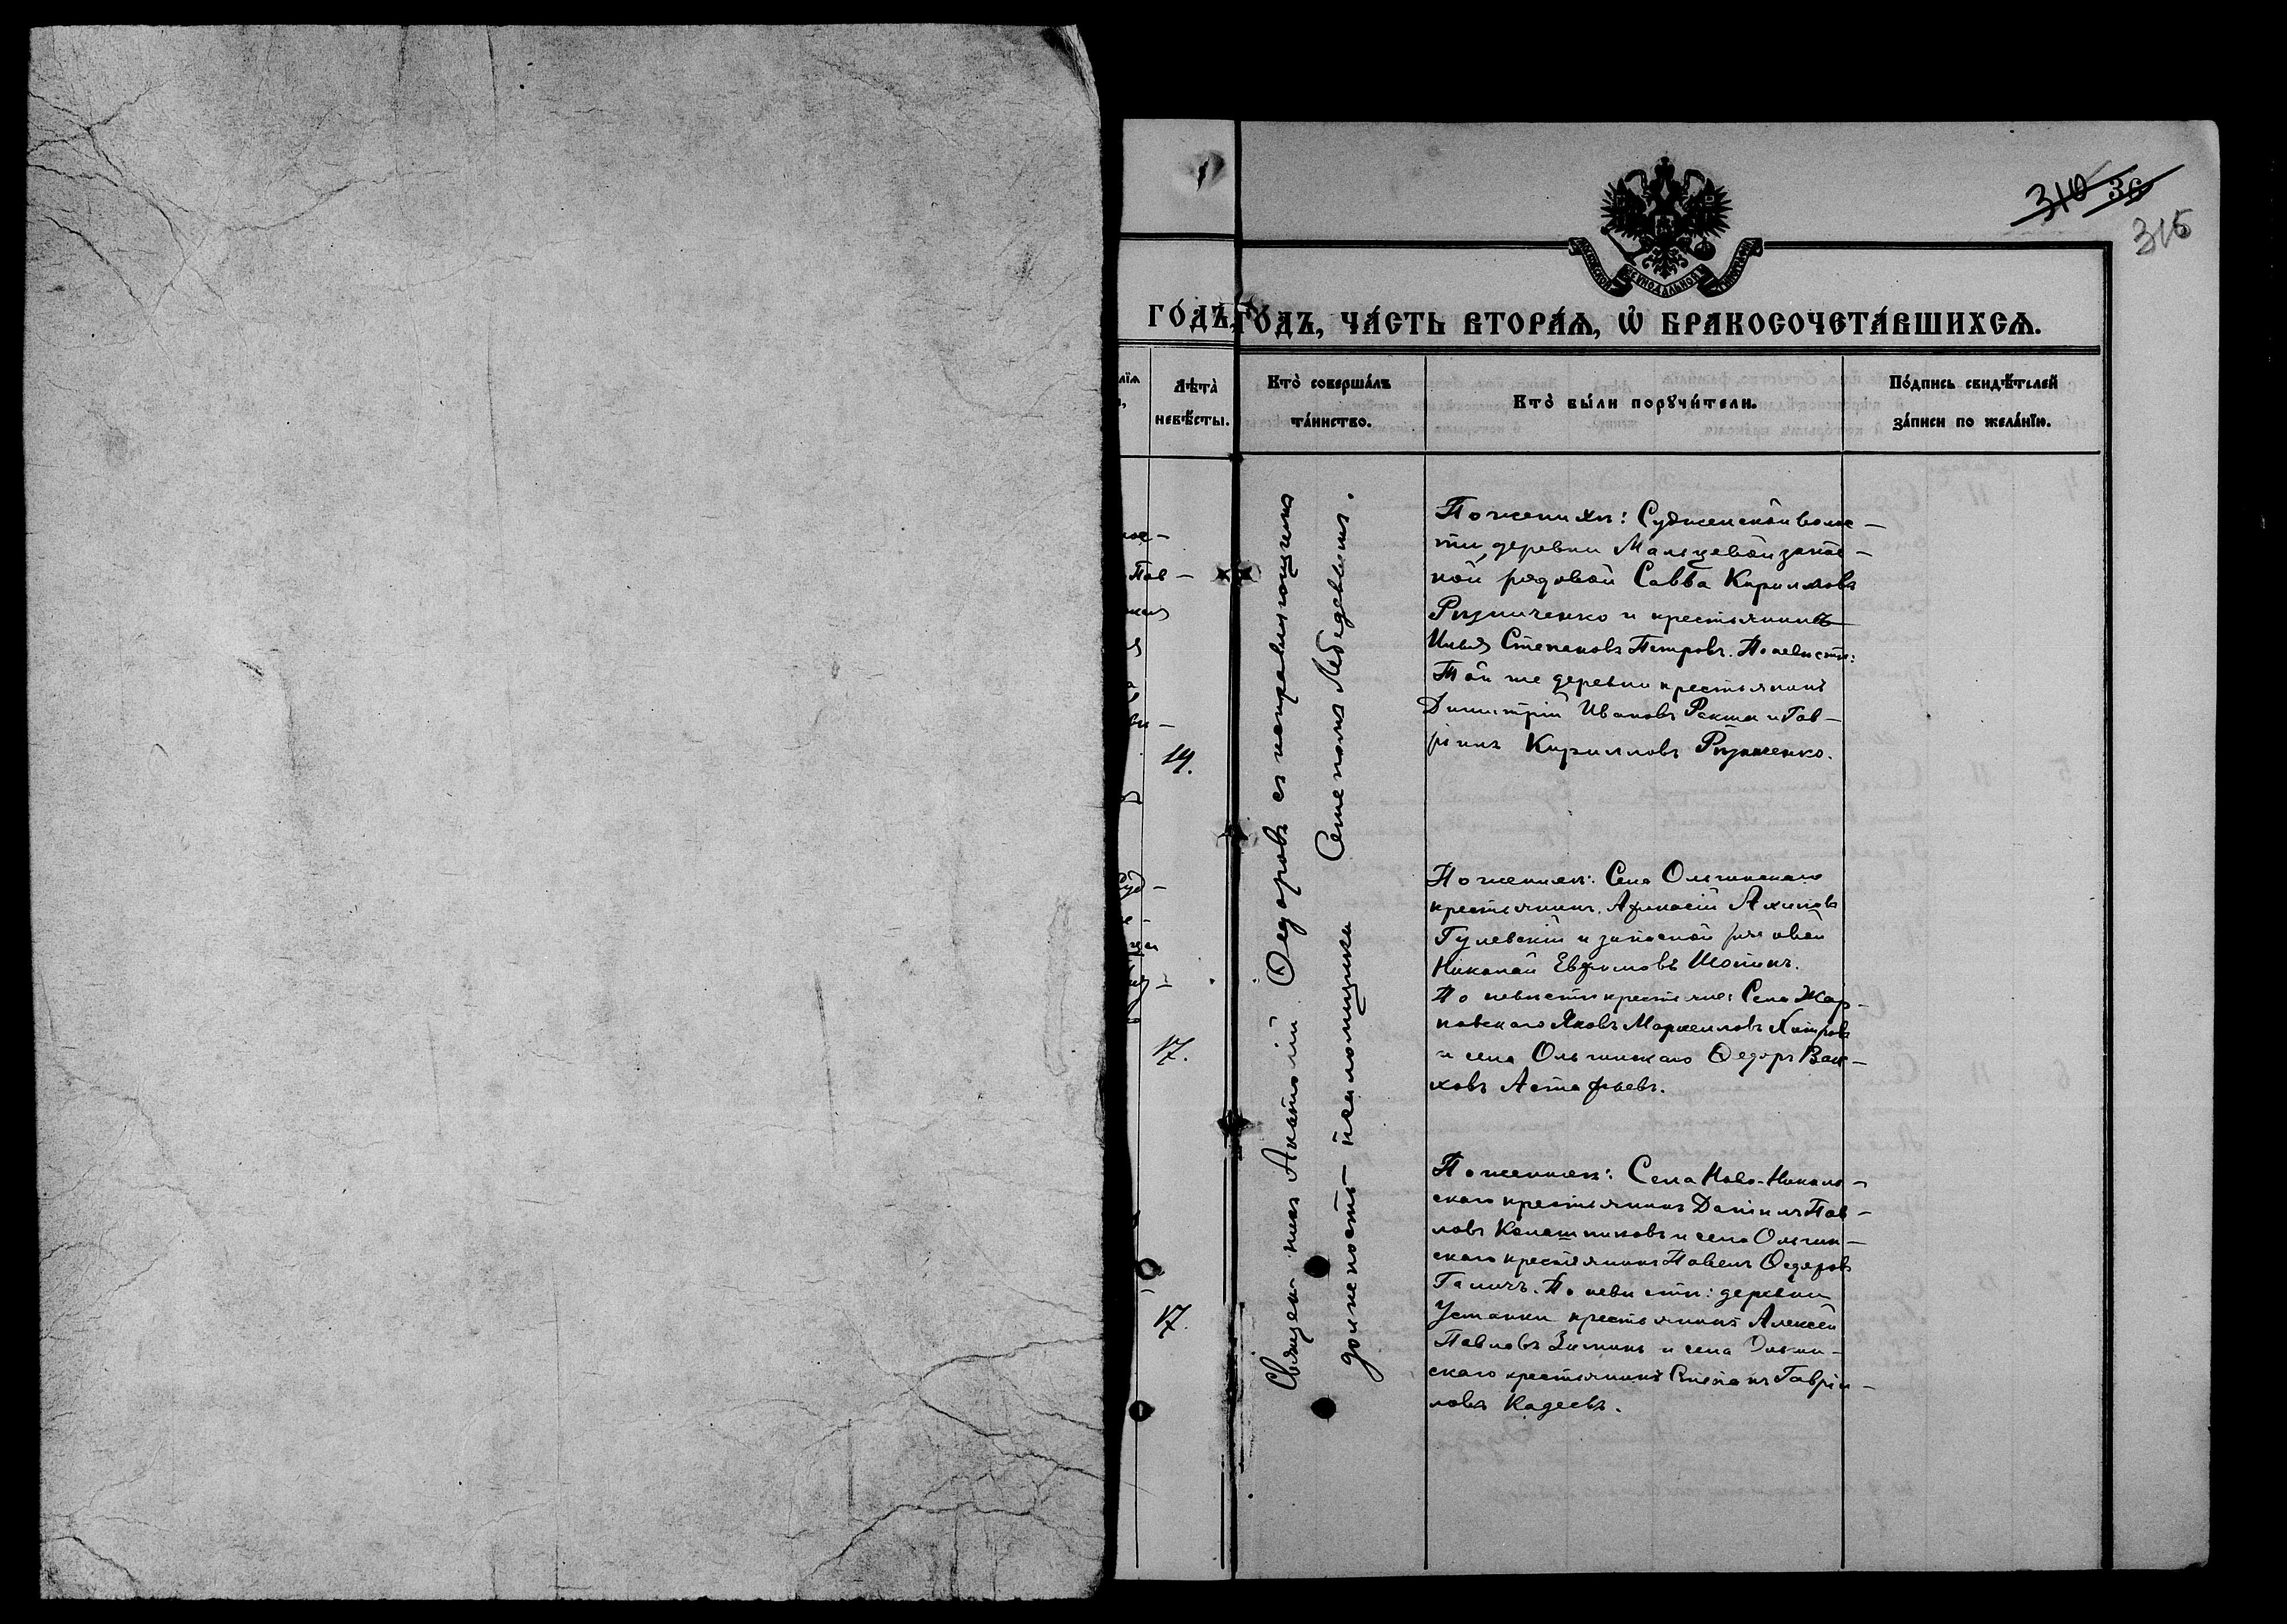 310 36
315
МОСКОВСКОЙ СѴНОДАЛЬНОЙ ТИПОГРАФІИ
ГО́ДЪ,
ГО́ДЪ, ЧА́СТЬ ВТОРА́Ѧ, Ѽ БРАКОСОЧЕТА́ВШИХСѦ.
Лѣ́та̀
невѣ́сты.
Кто̀ соверша́лъ
та́инство.
Кто̀ бы́ли порꙋчи́тели.
По́дпись свидѣ́телей
за́писи по жела́нїю.
19.
17.
17.
Священникъ Анатолій Ѳедоровъ съ исправляющимъ
должность псаломщика Степаномъ Лебедевымъ.
По женихѣ: Судженской волос-
ти, деревни Мальцевой запас-
ной рядовой Савва Кирилловъ
Рѣзниченко и крестьянинъ
Илья Степановъ Петровъ. По невѣстѣ:
Той же деревни крестьянинъ
Димитрій Ивановъ Ракша и Гав-
ріилъ Кирилловъ Рѣзниченко.
По женихѣ: Села Ольгинскаго
крестьянинъ Афанасій
Гулевскій и запасной рядовой
Николай Евфимовъ
По невѣстѣ крестьяне: Села Жар-
ковскаго Яковъ Маркелловъ Хитровъ
и села Ольгинскаго Ѳедоръ Вак-
ховъ Астафьевъ.
По женихѣ: Села Ново-Николь-
скаго крестьянинъ Даніилъ Пав-
ловъ Калашниковъ и села Ольгин-
скаго крестьянинъ Павелъ Ѳедоровъ
Галичъ. По невѣстѣ: деревни
Устанки крестьянинъ Алексѣй
Павловъ Зиминъ и села Ольгин-
скаго крестьянинъ Степанъ Гавріи-
ловъ Кадеевъ.